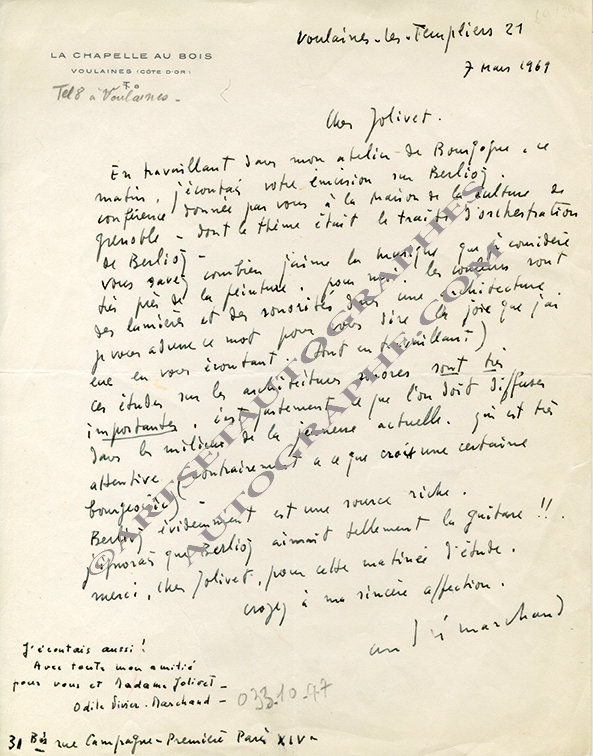 Voulaines-les-Templiers 21
7 Mars 1969
LA CHAPELLE AU BOIS
VOULAINES (CÔTE D'OR)
Tel 8 à Voulaines -
Cher Jolivet.
En travaillant dans mon atelier de Bourgogne, ce
matin, j'écoutais votre émission sur Berlioz.
conférence donnée par vous à la maison de la culture de
grenoble - dont le thème était le traité d'orchestration
de Berlioz -
Vous savez combien j'aime la musique que je considère
très près de la peinture, pour moi, les couleurs sont
des lumières et des sonorités dans une architecture
je vous adresse ce mot pour vous dire la joie que j'ai
eue en vous écoutant. (tout en travaillant)
ces études sur les architectures sonores sont très
importantes, c'est justement ce que l'on doit diffuser
dans les milieux de la jeunesse actuelle. qui est très
attentive (contrairement a ce que croit une certaine
bourgeoisie) -
Berlioz évidemment est une source riche.
j'ignorais que Berlioz aimait tellement la guitare !!
merci, cher Jolivet, pour cette matinée d'étude.
croyez à ma sincère affection.
andré marchand
J'écoutais aussi !
Avec toute mon amitié
pour vous et Madame Jolivet -
Odile Vivier-Marchand -
033-10-47
31 Bis rue Campagne-Première Paris XIV -
©ARTSETAUTOGRAPHES
AUTOGRAPHE.COM